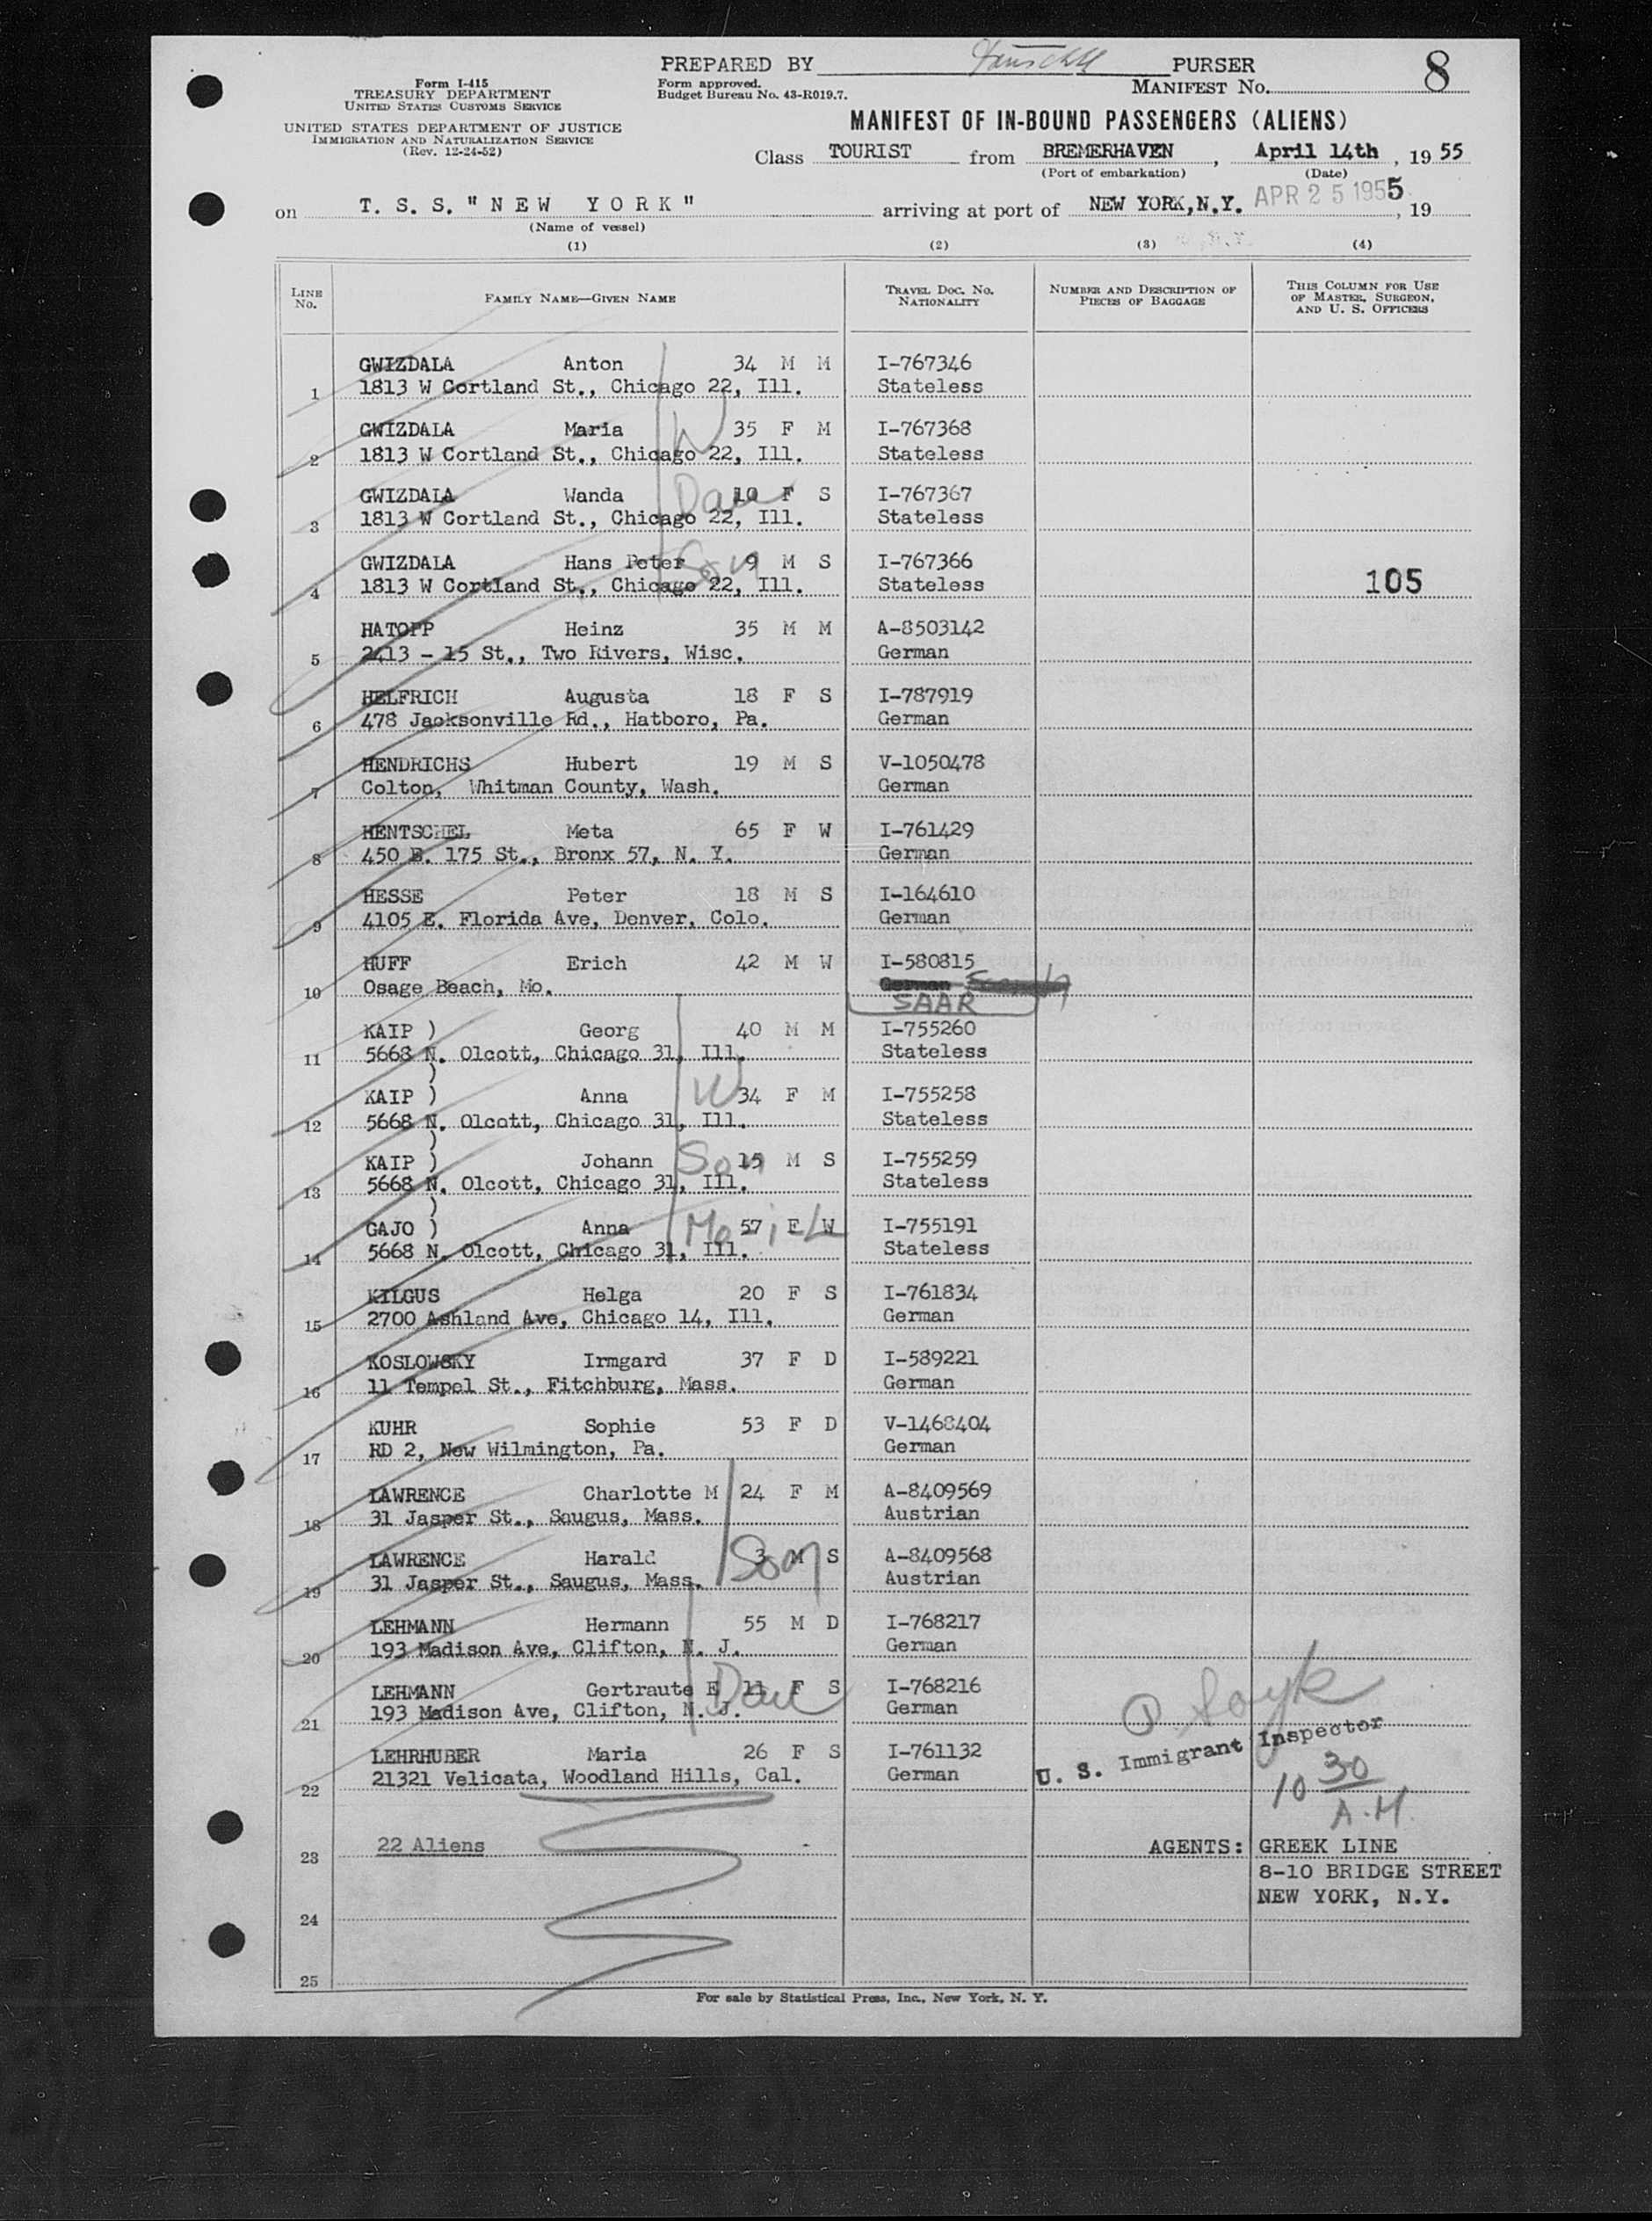 PREPARED BY PURSER
8
Form I-415
TREASURY DEPARTMENT
UNITED STATES CUSTOMS SERVICE
Form approved.
Budget Bureau No. 43-R019.7.
MANIFEST No.
UNITED STATES DEPARTMENT OF JUSTICE
IMMIGRATION AND NATURALIZATION SERVICE
(Rev. 12-24-52)
MANIFEST OF IN-BOUND PASSENGERS (ALIENS)
Class TOURIST from BREMERHAVEN, April 14th, 19 55
(Port of embarkation) (Date)
on T. S. S. "NEW YORK" arriving at port of NEW YORK, N.Y. APR 25 1955, 19
(Name of vessel)
(1) (2) (3) (4)
LINE No. FAMILY NAME—GIVEN NAME TRAVEL DOC. NO. NATIONALITY NUMBER AND DESCRIPTION OF PIECES OF BAGGAGE THIS COLUMN FOR USE OF MASTER, SURGEON, AND U. S. OFFICERS
GWIZDALA Anton 34 M M I-767346
1 1813 W Cortland St., Chicago 22, Ill. Stateless
GWIZDALA Maria W 35 F M I-767368
2 1813 W Cortland St., Chicago 22, Ill. Stateless
GWIZDALA Wanda Dau 10 F S I-767367
3 1813 W Cortland St., Chicago 22, Ill. Stateless
GWIZDALA Hans Peter Son 9 M S I-767366
4 1813 W Cortland St., Chicago 22, Ill. Stateless 105
HATOPP Heinz 35 M M A-8503142
5 2413 - 15 St., Two Rivers, Wisc. German
HELFRICH Augusta 18 F S I-787919
6 478 Jacksonville Rd., Hatboro, Pa. German
HENDRICHS Hubert 19 M S V-1050478
7 Colton, Whitman County, Wash. German
HENTSCHEL Meta 65 F W I-761429
8 450 E. 175 St., Bronx 57, N. Y. German
HESSE Peter 18 M S I-164610
9 4105 E. Florida Ave, Denver, Colo. German
HUFF Erich 42 M W I-580815
10 Osage Beach, Mo. German
SAAR
KAIP ) Georg 40 M M I-755260
11 5668 N. Olcott, Chicago 31, Ill. Stateless
)
KAIP ) Anna W 34 F M I-755258
12 5668 N. Olcott, Chicago 31, Ill. Stateless
)
KAIP ) Johann Son 15 M S I-755259
13 5668 N. Olcott, Chicago 31, Ill. Stateless
)
GAJO ) Anna Mo i L 57 F W I-755191
14 5668 N. Olcott, Chicago 31, Ill. Stateless
KILGUS Helga 20 F S I-761834
15 2700 Ashland Ave, Chicago 14, Ill. German
KOSLOWSKY Irmgard 37 F D I-589221
16 11 Tempel St., Fitchburg, Mass. German
KUHR Sophie 53 F D V-1468404
17 RD 2, New Wilmington, Pa. German
LAWRENCE Charlotte M 24 F M A-8409569
18 31 Jasper St., Saugus, Mass. Austrian
LAWRENCE Harald Son 3 M S A-8409568
19 31 Jasper St., Saugus, Mass. Austrian
LEHMANN Hermann 55 M D I-768217
20 193 Madison Ave, Clifton, N. J. German
LEHMANN Gertraute E Dau 11 F S I-768216
21 193 Madison Ave, Clifton, N. J. German
LEHRHUBER Maria 26 F S I-761132
22 21321 Velicata, Woodland Hills, Cal. German
U. S. Immigrant Inspector
10 30
A.M.
22 Aliens
23
AGENTS: GREEK LINE
8-10 BRIDGE STREET
NEW YORK, N.Y.
24
25
For sale by Statistical Press, Inc., New York, N. Y.